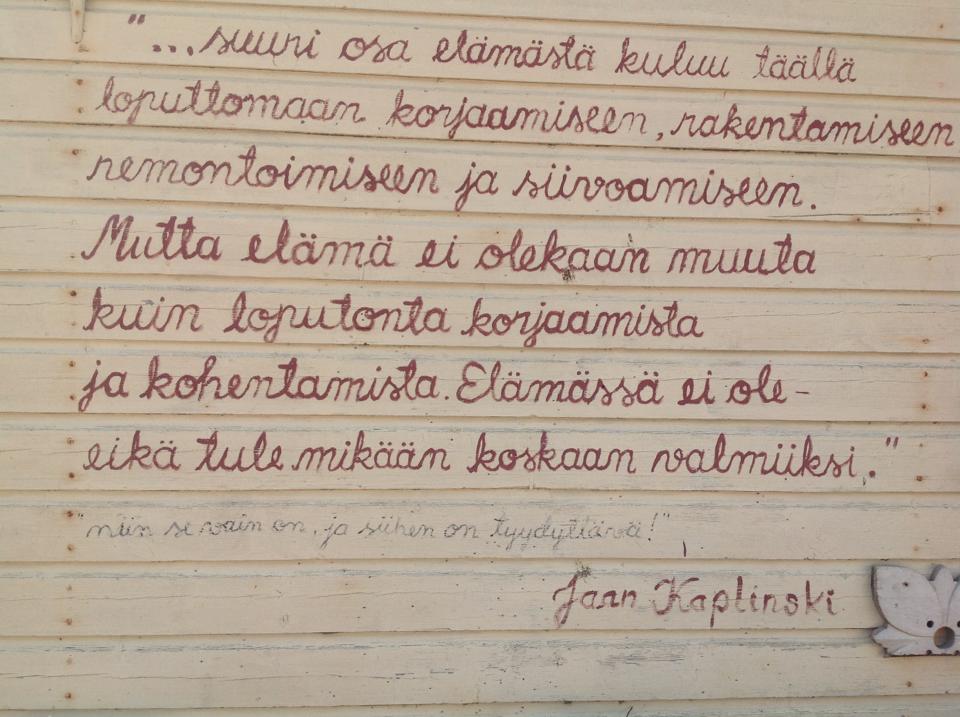 "...suuri osa elämästä kuluu täällä
loputtomaan korjaamiseen, rakentamiseen
remontoimiseen ja siivoamiseen.
Mutta elämä ei olekaan muuta
kuin loputonta korjaamista
ja kohentamista. Elämässä ei ole-
eikä tule mikään koskaan valmiiksi."
"niin se vain on, ja siihen on tyydyttävä!"
Jaan Kaplinski